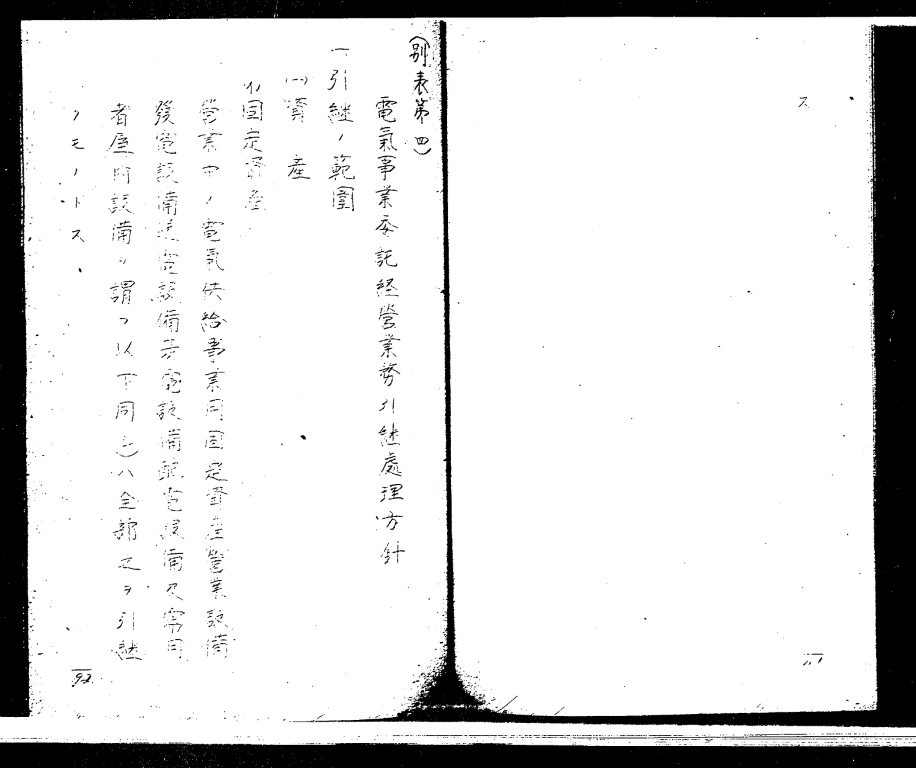 ス
(別表第四)
電氣事業委託経營業務引継處理方針
一引継ノ範圍
(一)資産
(イ)固定資産
營業中ノ電氣供給事業用固定資産營業設備
發電設備送電設備変電設備配電設備及需用
者屋内設備ヲ謂フ以下同シ)ハ全部之ヲ引継
クモノトス
92